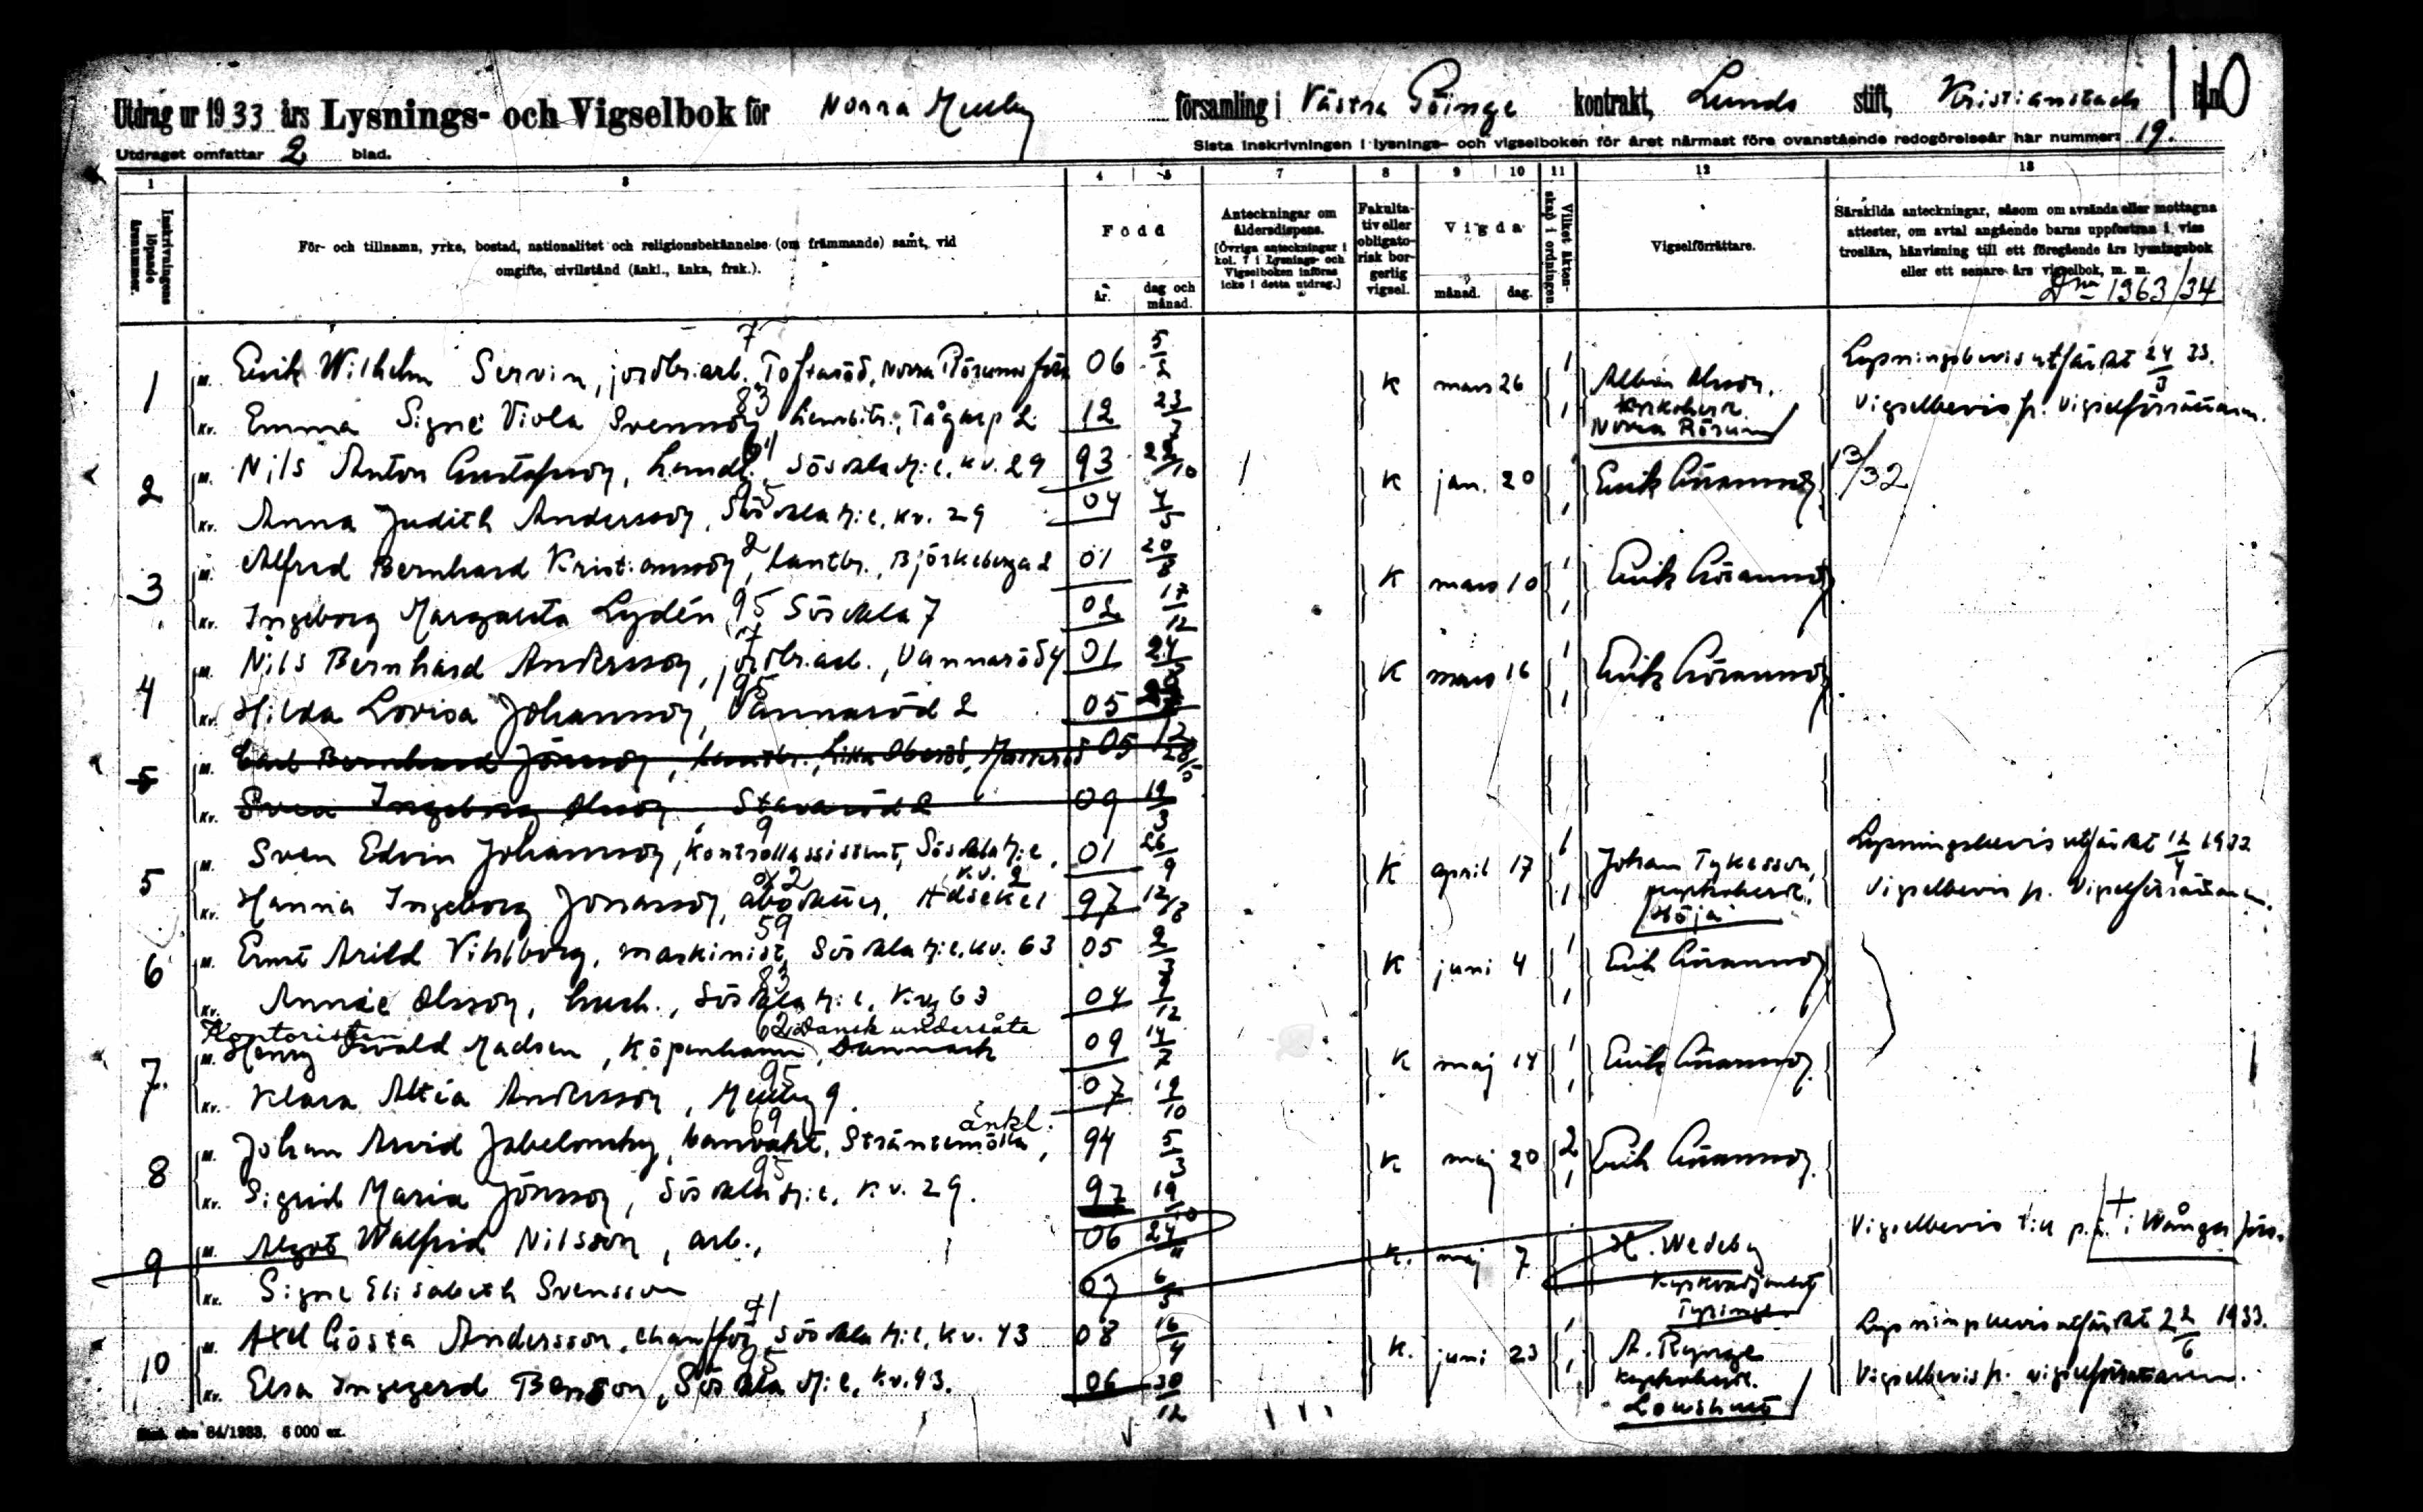 Utdrag ur 1933 års Lysnings- och Vigselbok för Norra Mellby församling i Västra Göinge kontrakt, Lunds stift, Kristianstads län 110
Utdraget omfattar 2 blad. Sista inskrivningen i lysnings- och vigselboken för året närmast före ovanstående redogörelseår har nummer: 19.
1 3 4 5 7 8 9 10 11 12 13
Inskrivningens löpande årsnummer.
För- och tillnamn, yrke, bostad, nationalitet och religionsbekännelse (om främmande) samt, vid omgifte, civilstånd (änkl., änka, frsk.).
Född
år. dag och månad.
Anteckningar om åldersdispens. [Övriga anteckningar i kol. 7 i Lysnings- och Vigselboken införas icke i detta utdrag.]
Fakultativ eller obligatorisk borgerlig vigsel.
Vigda
månad. dag.
Vilket äktenskap i ordningen.
Vigselförrättare.
Särskilda anteckningar, såsom om avsända eller mottagna attester, om avtal angående barns uppfostran i viss troslära, hänvisning till ett föregående års lysningsbok eller ett senare års vigselbok, m. m.
Dnr 1363/34
7
1 M. Erik Wilhelm Servin, jordbr.arb. Toftaröd, Norra Rörums förs. 06 5/2 K mars 26 1 Albin Olsson, kyrkoherde. Norra Rörum Lysningsbevis utfärdat 24/3 33.
83
Kv. Emma Signe Viola Svensson, hembitr., Tågarp 2 12 23/7 1 Vigselbevis fr. vigselförrättaren.
61
2 M. Nils Anton Gustafsson, handl. Sösdala st:e, kv. 29 93 22/10 1 K jan. 20 Erik Göransson 13/32
95
Kv. Anna Judith Andersson, Sösdala st:e, kv. 29 04 4/5 1
2
3 M. Alfred Bernhard Kristiansson, lantbr., Björkeberga 2 01 20/8 K mars 10 1 Erik Göransson
95
Kv. Ingeborg Margareta Lydén, Sösdala 7 02 17/12 1
7
4 M. Nils Bernhard Andersson, jordbr.arb., Vannaröd 4 01 K mars 16 1 Erik Göransson
95
Kv. Hilda Lovisa Johansson, Vannaröd 2 05 1
5 M. Carl Bernhard Jönsson, lantbr., 05
Kv. Svea Ingeborg Olsson, Stavaröd 2 09 19/3
9
5 M. Sven Edvin Johansson, kontrollassistent, Sösdala st:e, kv. 2 01 26/9 K april 17 1 Johan Tykesson, kyrkoherde. Höja Lysningsbevis utfärdat 12/4 1933
Kv. Hanna Ingeborg Jonasson, Adsekel 97 12/8 1 Vigselbevis fr. vigselförrättaren.
59
6 M. Ernst Arild Vihlborg, maskinist, Sösdala st:e, kv. 63 05 K juni 4 1 Erik Göransson
83
Kv. Annie Olsson, hush., Sösdala st:e, kv. 63 04 1
Kontoristen 62 Dansk undersåte
7. M. Henry Osvald Madsen, Köpenhamn, Danmark 09 14/7 K maj 14 1 Erik Göransson
95
Kv. Klara Altea Andersson, Mellby 9. 07 19/10 1
69 änkl.
8 M. Johan Arvid Jabelonsky, banvakt, Sträntemölla, 94 5/3 K maj 20 2 Erik Göransson
95
Kv. Sigrid Maria Jönsson, Sösdala st:e, kv. 29. 97 19/10 1
9 M. Algot Walfrid Nilsson, arb., 06 24/11 K. maj 7 H. Wedeby kyrkoadjunkt Tyringe Vigselbevis till p.ä. i Wånga förs.
Kv. Signe Elisabeth Svensson 03 6/5
71
10 M. Axel Gösta Andersson, chaufför, Sösdala st:e, kv. 43 08 16/4 K. juni 23 1 A. Rynge kyrkoherde. Lönshult Lysningsbevis utfärdat 22/6 1933.
95
Kv. Elsa Ingegerd Bengtson, Sösdala st:e, kv. 43. 06 30/12 1 Vigselbevis fr. vigselförrättaren.
64/1933. 6000 ex.